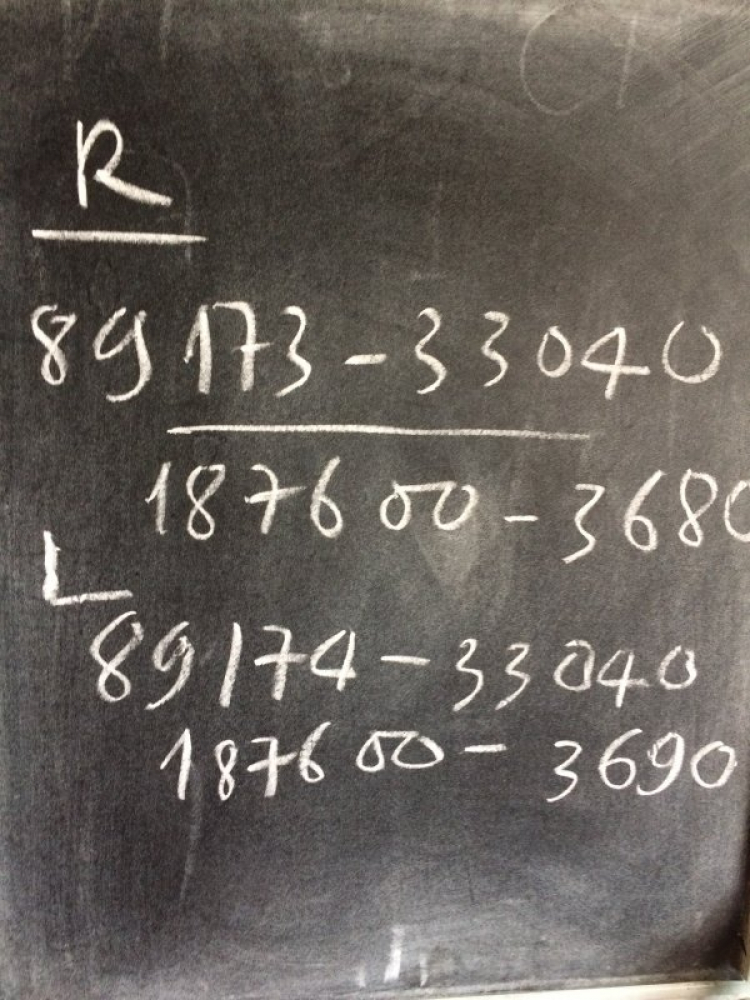 R
89173-33040
187600-3680
L
89174-33040
187600-3690